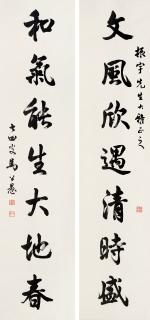 振宇先生大雅正之
文風欣遇清時盛
和氣能生大地春
馬公愚